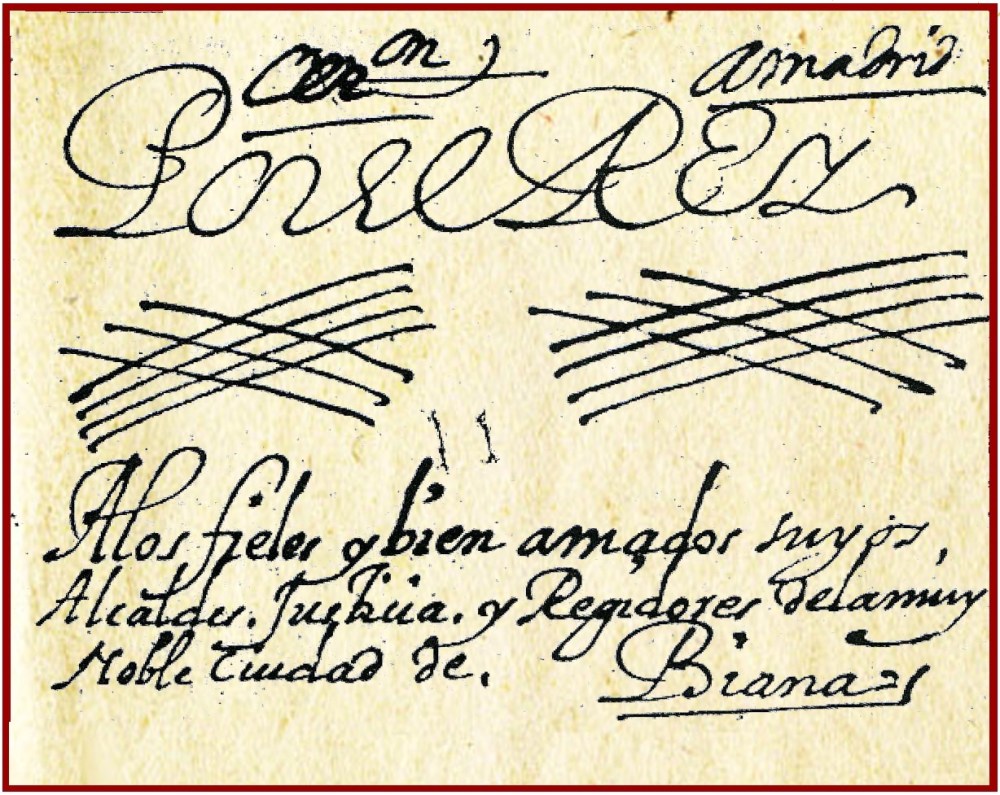 Cer.on amadrid
Por El REy
Alos fieles y bien amados suyos,
Alcaldes. Justicia. y Regidores delamuy
Noble Ciudad de. Biana